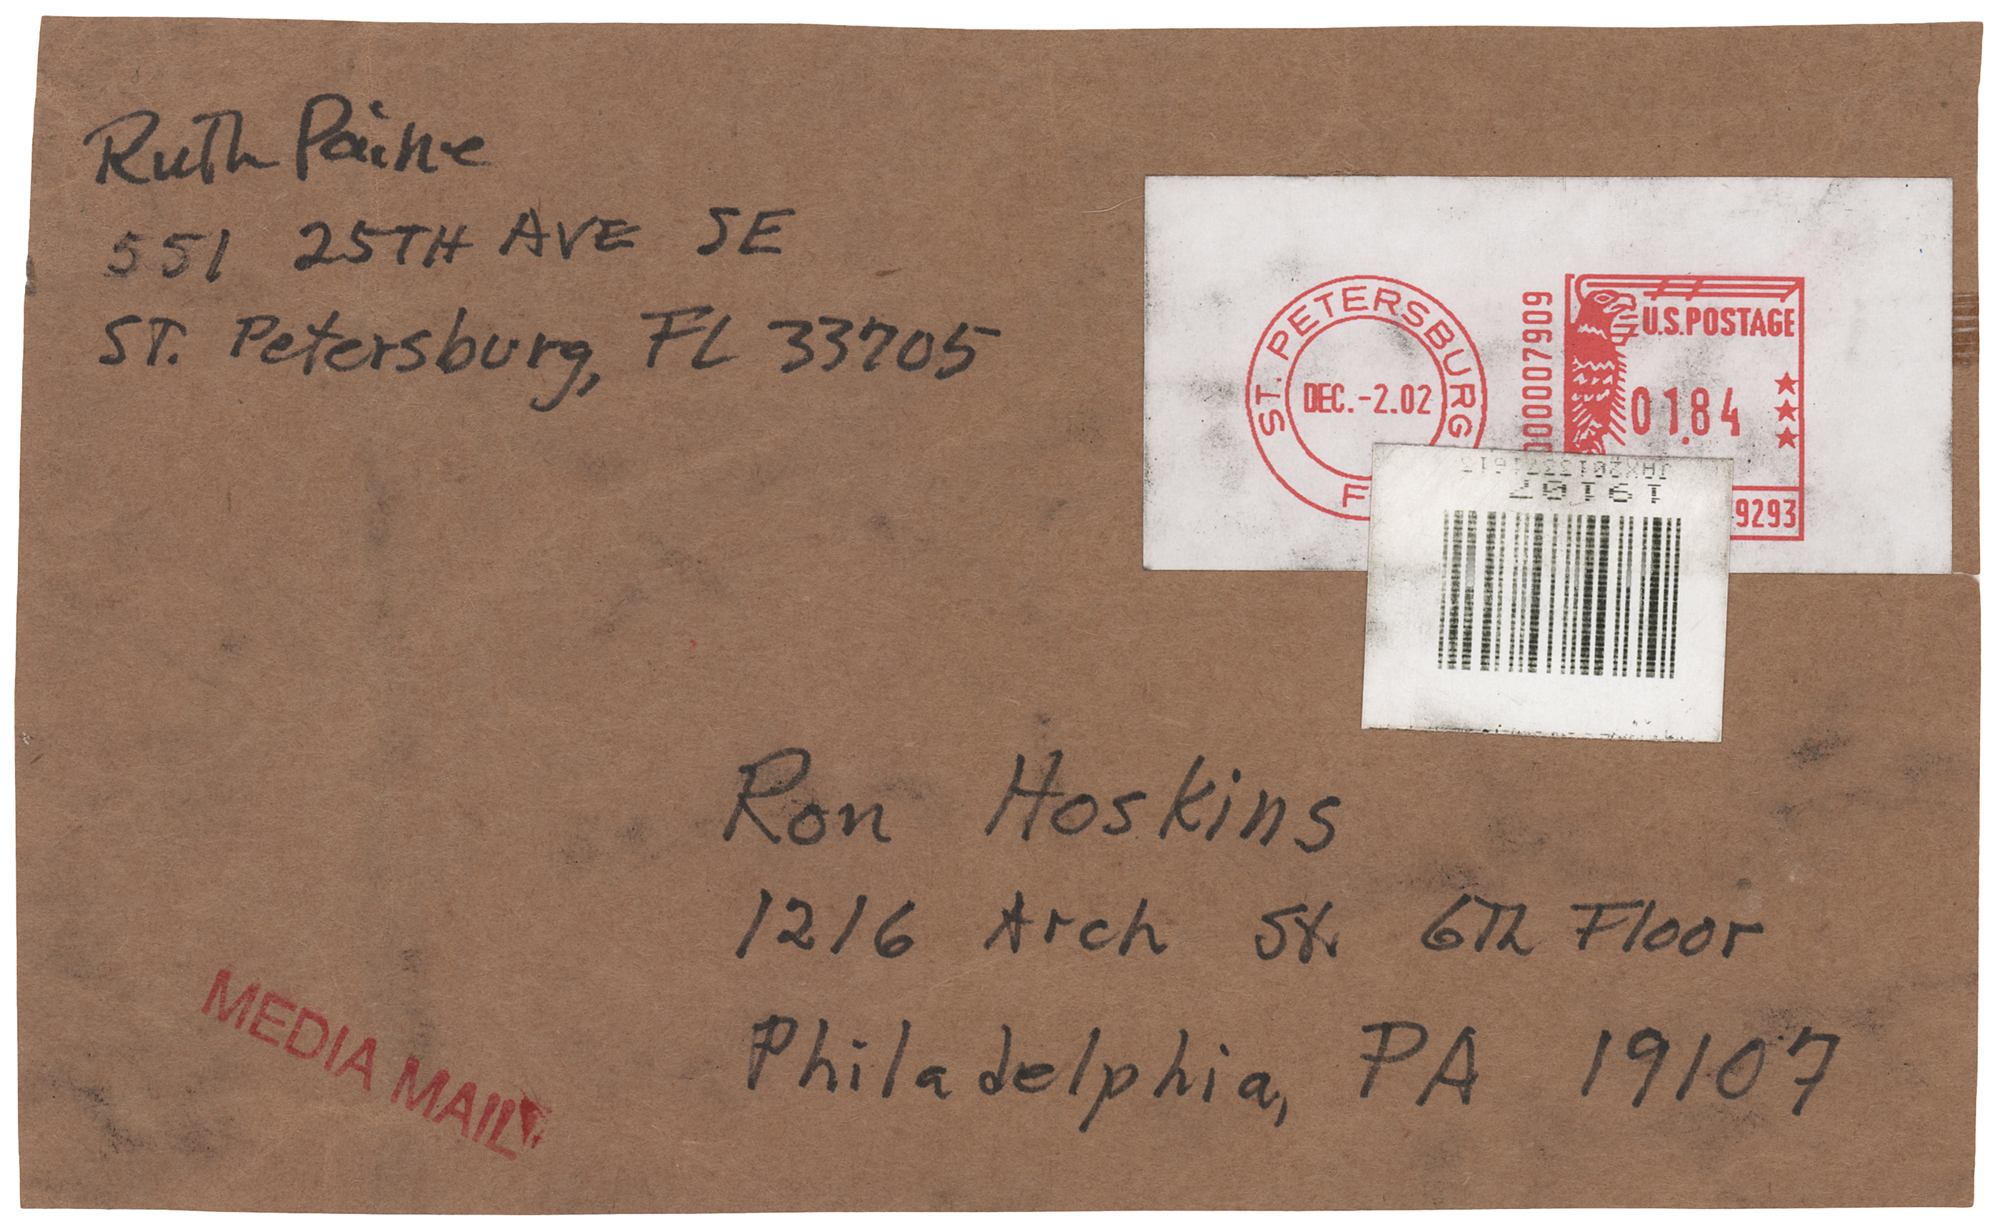 Ruth Paine
551 25TH AVE SE
ST. Petersburg, FL 33705
ST. PETERSBURG
DEC.-2.02
F
00007909
U.S. POSTAGE
01.84
9293
19107
Ron Hoskins
1216 Arch St. 6Th Floor
Philadelphia, PA 19107
MEDIA MAIL